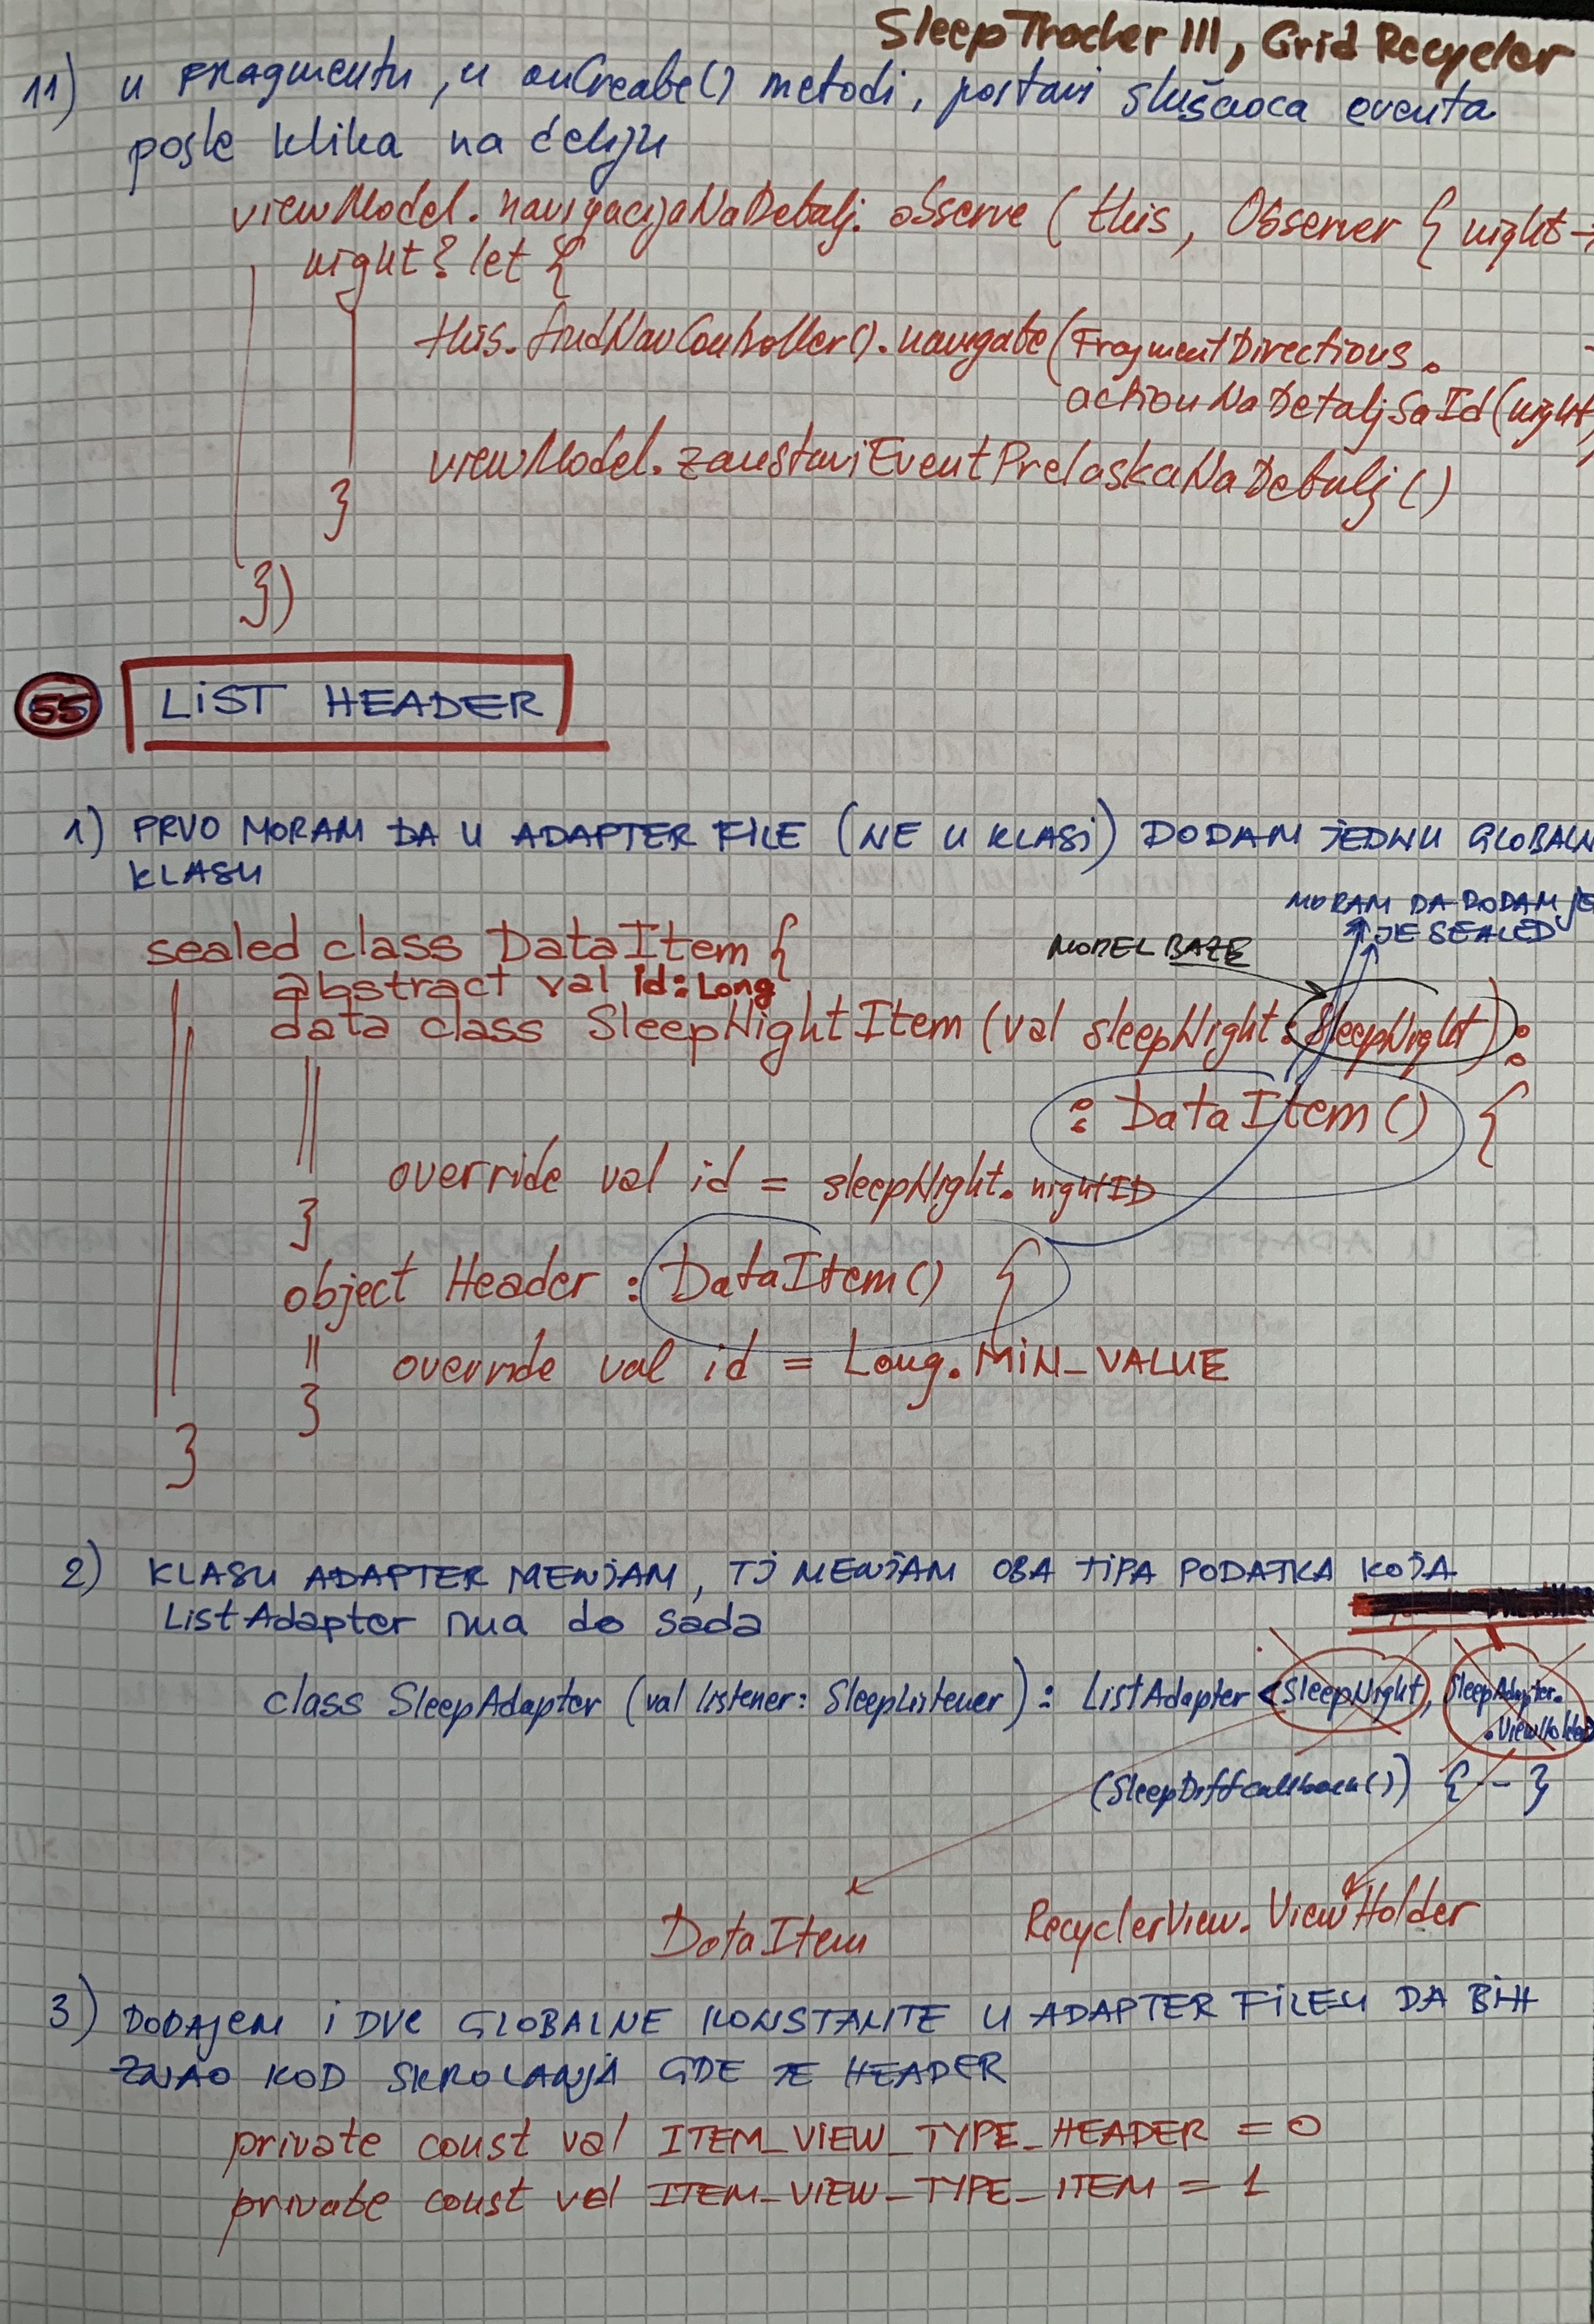 SleepTracker III, Grid Recycler
11) u fragmentu, u onCreate() metodi, postavi slušaoca eventa
posle klika na ćeliju
viewModel.navigacijaNaDetalj.observe (this, Observer { night →
night?let {
this.findNavController().navigate(FragmentDirections.
actionNaDetaljSaId(night)
viewModel.zaustaviEventPrelaskaNaDetalj()
}
})
55 LIST HEADER
1) PRVO MORAM DA U ADAPTER FILE (NE U KLASI) DODAM JEDNU GLOBALN
KLASU
MORAM DA DODAM JE
JE SEALED
sealed class DataItem {
MODEL BAZE
abstract val id: Long
data class SleepNightItem (val sleepNight: SleepNight) :
: DataItem() {
override val id = sleepNight.nightID
}
object Header : DataItem() {
override val id = Long.MIN_VALUE
}
}
2) KLASU ADAPTER MENJAM, TJ MENJAM OBA TIPA PODATKA KOJA
ListAdapter ima do sada
class SleepAdapter (val listener: SleepListener) : ListAdapter <SleepNight, SleepAdapter.
.ViewHolder
(SleepDiffCallback()) { -- }
DataItem RecyclerView.ViewHolder
3) DODAJEM I DVE GLOBALNE KONSTANTE U ADAPTER FILEU DA BIH
ZNAO KOD SKROLANJA GDE JE HEADER
private const val ITEM_VIEW_TYPE_HEADER = 0
private const val ITEM_VIEW_TYPE_ITEM = 1